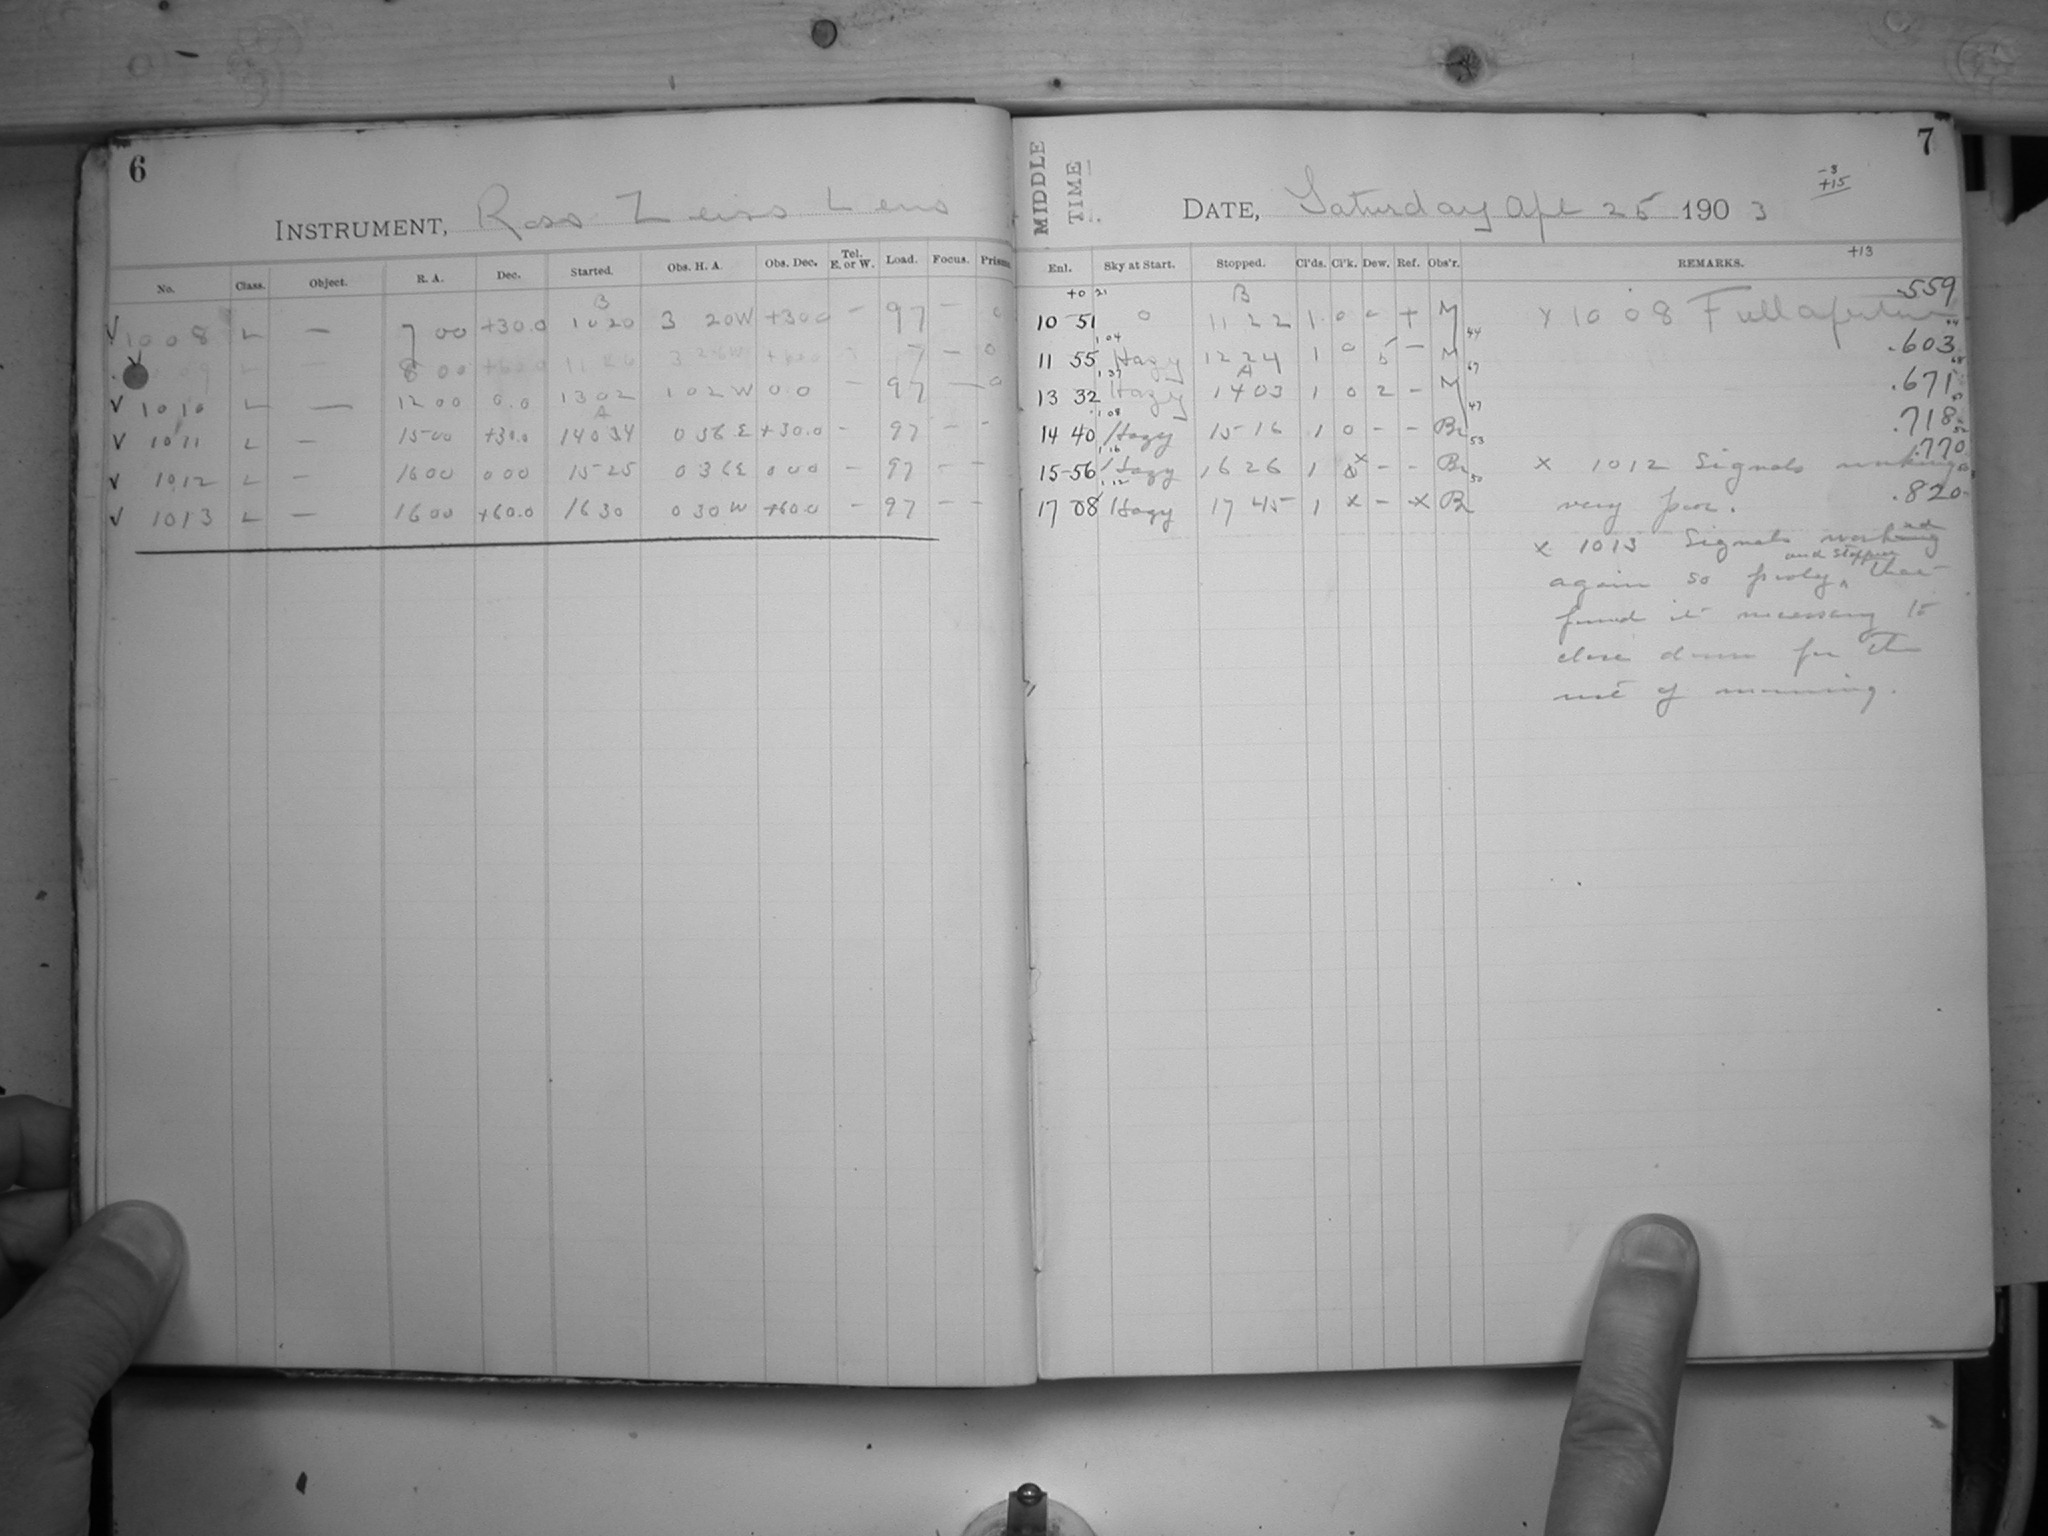 6
INSTRUMENT, Ross Zeiss Lens
No. Class. Object. R. A. Dec. Started. Obs. H. A. Obs. Dec. Tel. E. or W. Load. Focus. Prisms
B
✓ 1008 L — 7 00 +30.0 10 20 3 20W +30 0 — 97 — 0
✓ 09 L — 8 00 +60.0 11 26 3 26W 7 — 0
✓ 1010 L — 12 00 0.0 13 02 1 02W 0 0 — 97 — 0
A
✓ 1011 L — 15 00 +30.0 14 034 0 56E +30.0 — 97 — -
✓ 1012 L — 16 00 0 00 15-25 0 36E 0 00 — 97 — —
✓ 1013 L — 16 00 +60.0 16 30 0 30W +60.0 — 97 — —
7
MIDDLE
TIME
DATE, Saturday Apl 25 1903
-8
+15
+13
Enl. Sky at Start. Stopped. Cl'ds. Cl'k. Dew. Ref. Obs'r. REMARKS.
+0 21 B
10 51 0 11 22 1 0 0 + M x 1008 Full aperture .559
1 04 44
11 55 Hazy 12 24 1 0 5 — M .603
1 37 A 67
13 32 Hazy 14 03 1 0 2 — M .671
1 08 47
14 40 Hazy 15-16 1 0 — — Br .718
1 16 53
15-56 Hazy 16 26 1 0 x — — Br x 1012 Signals working .770
1 12 50
17 08 Hazy 17 45 1 x — x Br very poor. .820
x 1013 Signals working
and stopped
again so poorly ʌ that
found it necessary to
close down for the
rest of morning.